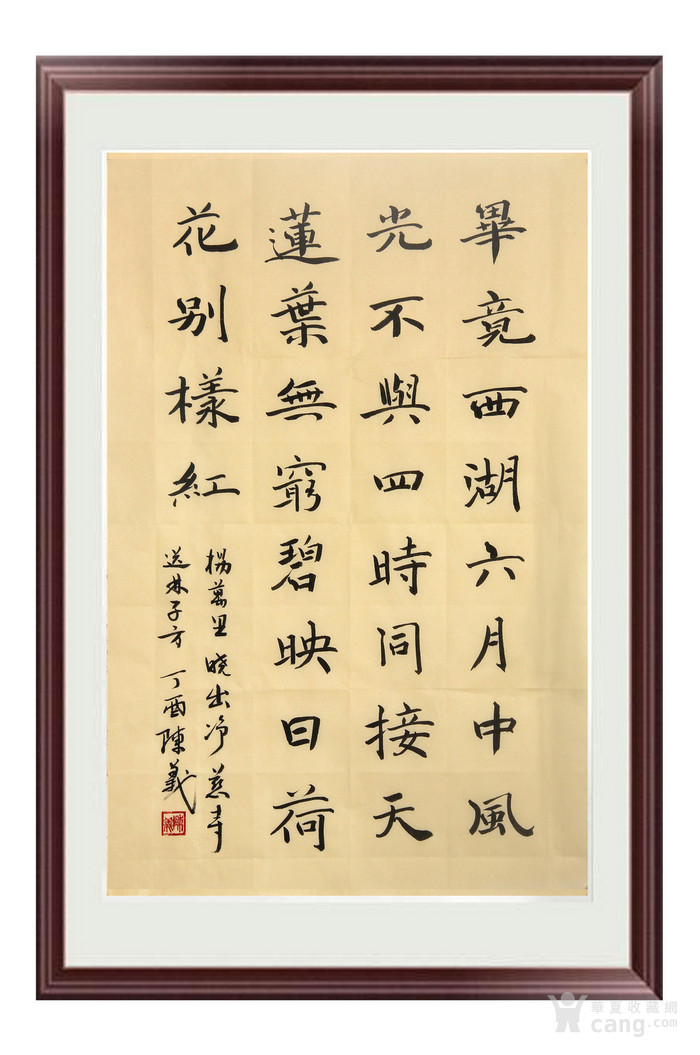 畢竟西湖六月中風
光不與四時同接天
蓮葉無窮碧映日荷
花別樣紅
楊萬里曉出净慈寺
送林子方丁酉陳義
華夏收藏網
cang.com